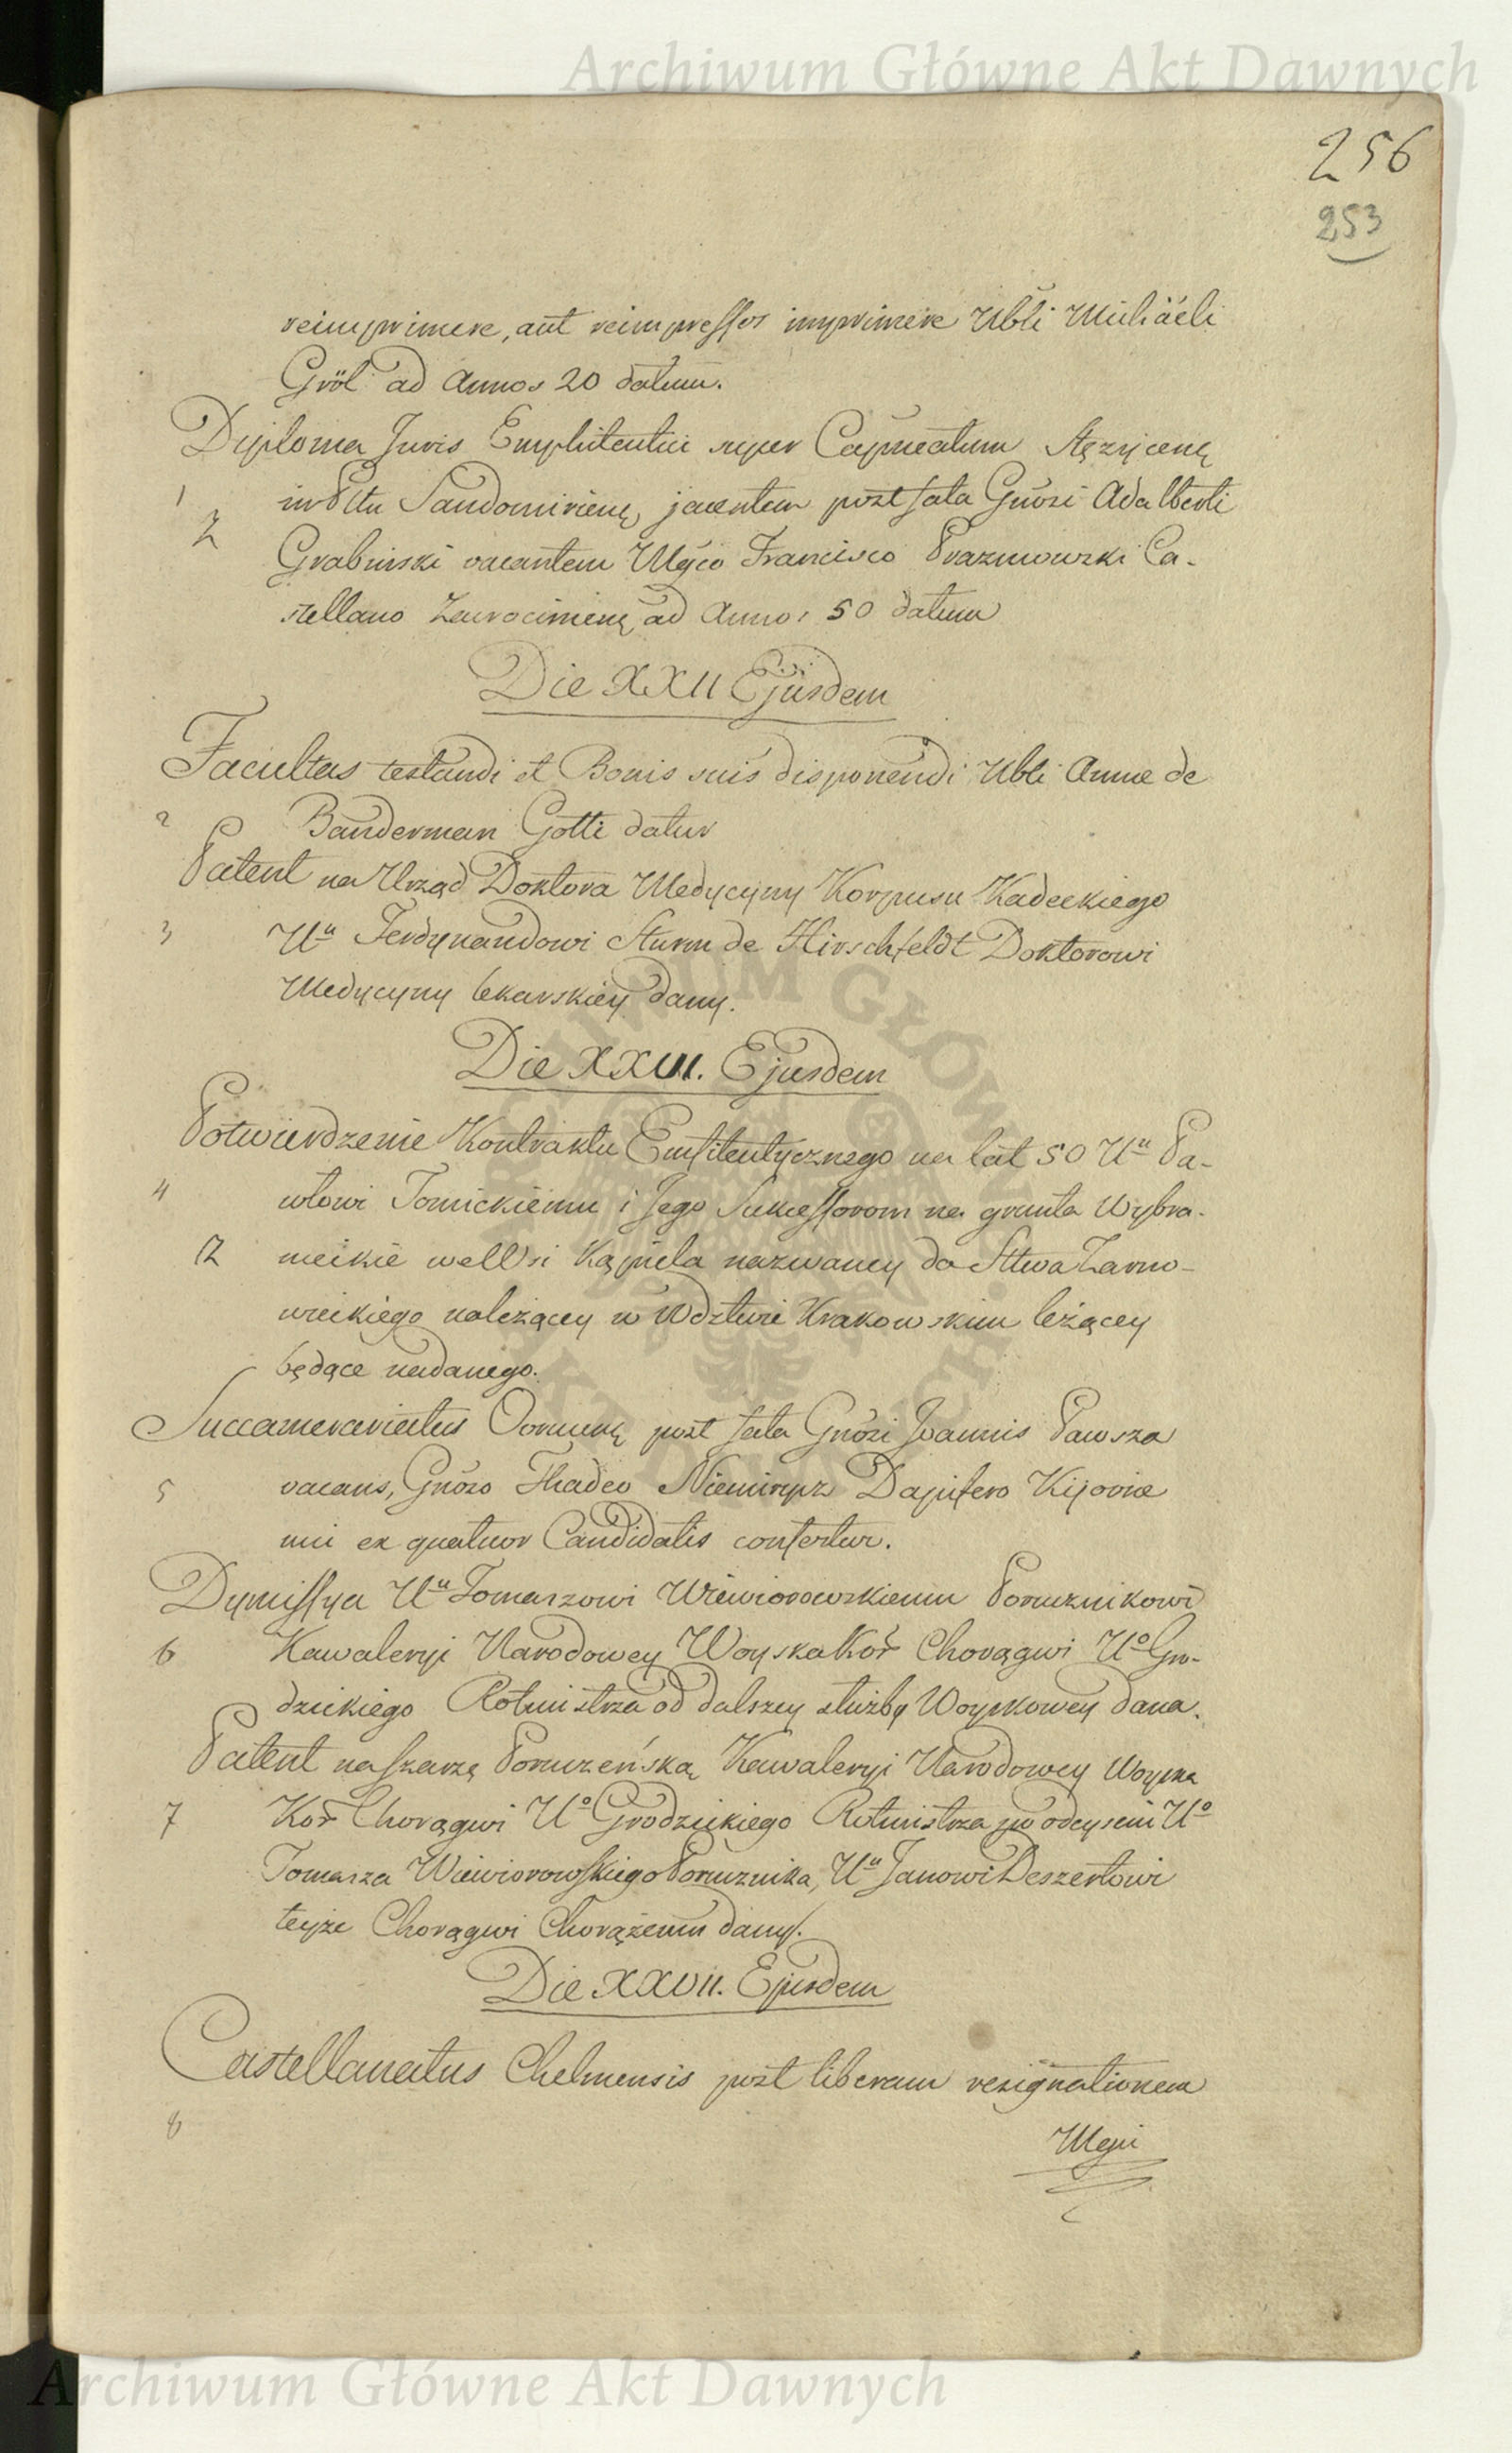 Archiwum Główne Akt Dawnych
256
253
reimprimere, aut reimpressos imprimere Ubli Michäeli
Gröl ad Annos 20 datum.
Dyploma Juris Emphitentici super Capneatum Stęzycenę
1 in Pltu Sandomirienę jacentem post fata Gnosi Adalberti
Z Grabinski vacantem Mgco Francisco Prazmowski Ca-
stellano Zacrocimienę ad Annos 50 datum
Die XXII Ejusdem
Facultas testandi et Bonis suis disponendi Ubli Annæ de
2 Banderman Gotti datur
Patent na Urząd Doktora Medycyny Korpusu Kadeckiego
3 Uu Ferdynandowi Sturm de Hirschfeldt Doktorowi
Medycyny lekarskiey dany.
Die XXIII. Ejusdem
Potwierdzenie Kontraktu Emfiteutycznego na lat 50 Uu Pa-
4 włowi Tomickiemu i Jego Sukcessorom na grunta Wybra-
Z nieckie we Wsi Kąpiela nazwaney do Sttwa Żarno-
wieckiego należącey w Wdztwie Krakowskim leżącey
będące nadanego.
Succamerariatus Ovruenę post fata Gnosi Joannis Pawsza
5 vacans, Gnoso Thadeo Niemirycz Dapifero Kijovie
nii ex quatuor Candidatis confertur.
Dymissya Uu Tomaszowi Wiewiorowskiemu Porucznikowi
6 Kawaleryi Narodowey Woyska Kor Chorągwi Uo Gro-
dzickiego Rotmistrza od dalszey służby Woyskowey dana.
Patent na szarżę Poruczeńską Kawaleryi Narodowey Woyska
7 Kor Chorągwi Uo Grodzickiego Rotmistrza po odeyściu Uo
Tomasza Wiewiorowskiego Porucznika, Uu Janowi Deszertowi
teyże Chorągwi Chorążemu dany.
Die XXVII. Ejusdem
Castellanatus Chelmensis post liberam resignationem
8
Mgci
Archiwum Główne Akt Dawnych